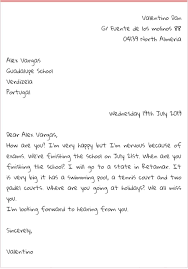 Valentino Dan
C/ Fuente de los molinos 88
04139 North Almeria
Alex Vargas
Guadalupe School
Vendazela
Portugal
Wednesday 19th July 2019
Dear Alex Vargas,
How are you? I'm very happy but I'm nervous because of
exams. We're finishing the school on July 21st. When are you
finishing the school? I'm going to a state in Retamar. It
is very big, it has a swimming pool, a tennis court and two
padel courts. Where are you going at holidays? We all miss
you.
I'm looking forward to hearing from you!
Sincerely,
Valentino